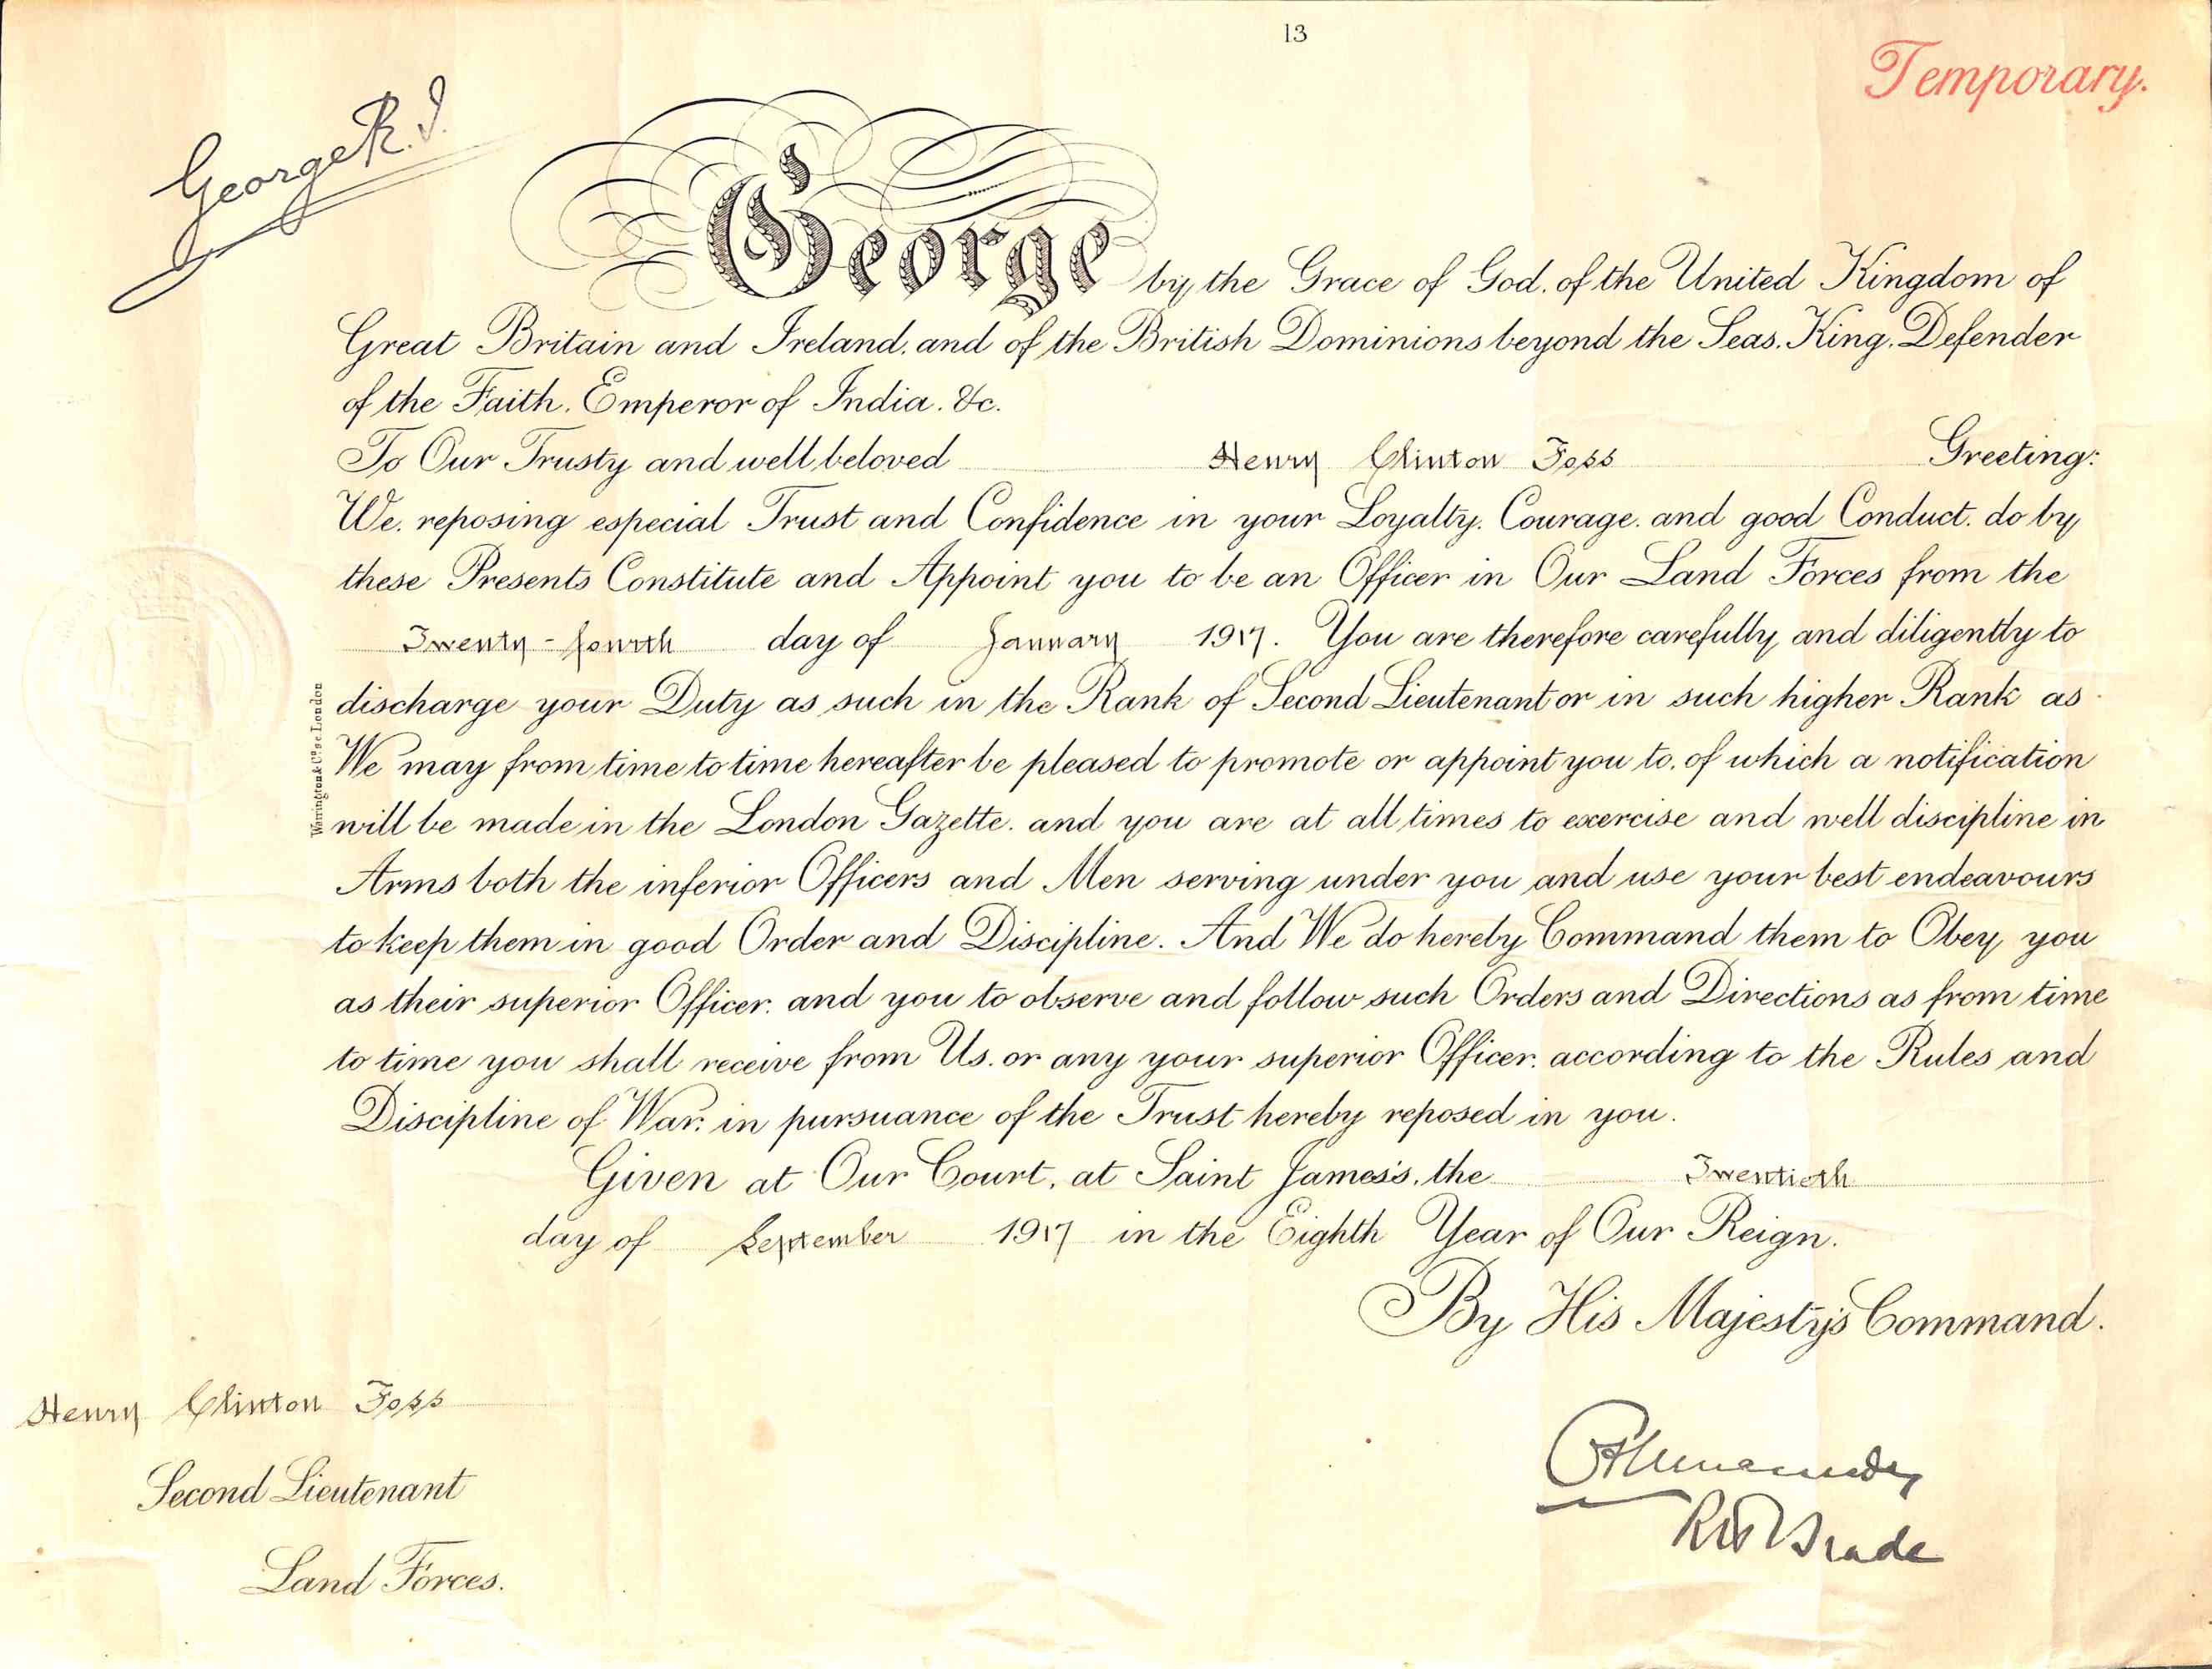 13
Temporary.
George R.I.
George by the Grace of God, of the United Kingdom of
Great Britain and Ireland, and of the British Dominions beyond the Seas, King, Defender
of the Faith, Emperor of India, &c.
To Our Trusty and well beloved Henry Clinton Foss Greeting:
We, reposing especial Trust and Confidence in your Loyalty, Courage, and good Conduct, do by
these Presents Constitute and Appoint you to be an Officer in Our Land Forces from the
Twenty-fourth day of January 1917. You are therefore carefully and diligently to
discharge your Duty as such in the Rank of Second Lieutenant or in such higher Rank as
We may from time to time hereafter be pleased to promote or appoint you to, of which a notification
will be made in the London Gazette, and you are at all times to exercise and well discipline in
Arms both the inferior Officers and Men serving under you and use your best endeavours
to keep them in good Order and Discipline. And We do hereby Command them to Obey you
as their superior Officer, and you to observe and follow such Orders and Directions as from time
to time you shall receive from Us, or any your superior Officer, according to the Rules and
Discipline of War, in pursuance of the Trust hereby reposed in you.
Given at Our Court, at Saint James's, the Twentieth
day of September 1917 in the Eighth Year of Our Reign.
By His Majesty's Command.
Henry Clinton Foss
Second Lieutenant
Land Forces.
R H Brade
Warrington & Co. London